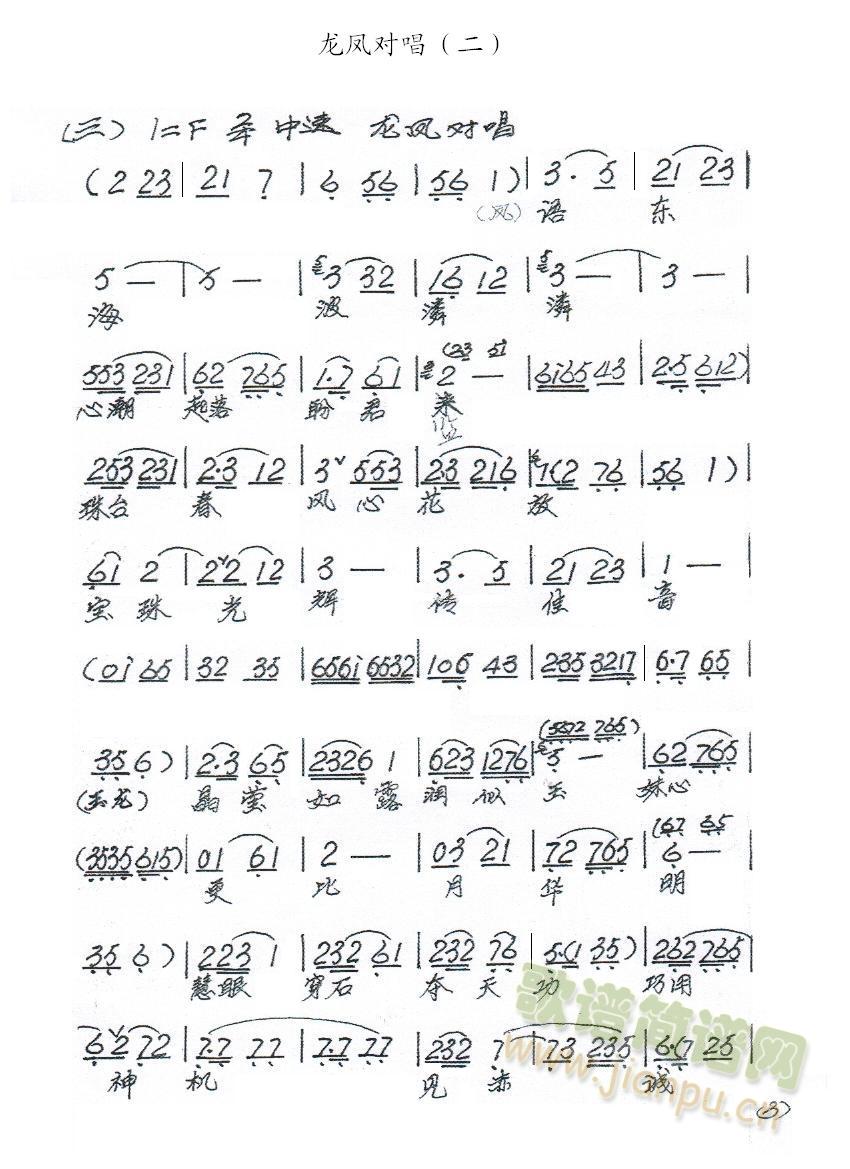 龙凤对唱（二）
（三）1=F 中速 龙凤对唱
(2 23 | 21 7 | 6 56 | 56 1) | 3· 5 | 21 23 |
（凤）语 东
5 — | 5 — | 3 32 | 16 12 | 3 — | 3 — |
海 波 潾 潾
(23 5)
553 231 | 62 765 | 1·7 61 | 2 — | 6i65 43 | 2·5 612) |
心潮 起落 盼君 来
253 231 | 2·3 12 | 3 553 | 23 216 | 7(2 76 | 56 1) |
珠台 春 风心花 放
61 2 | 2 2 12 | 3 — | 3· 5 | 21 23 | 1 — |
宝珠光 辉 传 佳 音
(0i 65 | 32 35 | 656i 6532 | 106 43 | 235 3217 | 6·7 65 |
(5672 765)
35 6) | 2·3 65 | 2326 1 | 623 1276 | 5 — | 62 765 |
（玉龙） 晶莹 如露 润似 玉 妹心
(67 35
(3535 615) | 01 61 | 2 — | 03 21 | 72 765 | 6 — |
更 比 月 华 明
35 6) | 223 1 | 232 61 | 232 76 | 5·(1 35) | 262 765 |
慧眼 穿石 夺天 功 巧用
62 72 | 7·7 77 | 7·7 77 | 232 7 | 73 235 | 6·(7 25 |
神 机 见 赤 诚
歌谱简谱网
www.jianpu.cn
(3)